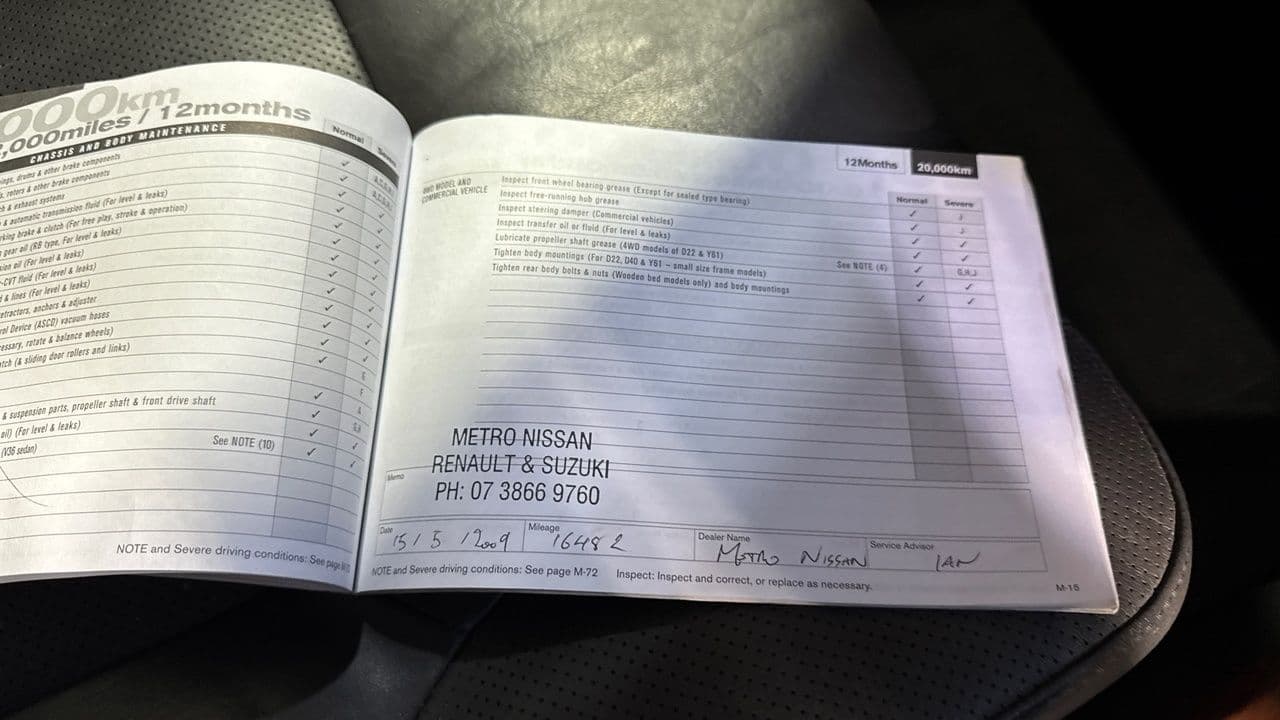 000km
,000miles / 12months
CHASSIS AND BODY MAINTENANCE
Normal
Severe
drums & other brake components
rotors & other brake components
& exhaust systems
& automatic transmission fluid (For level & leaks)
brake & clutch (For free play, stroke & operation)
gear oil (RB type, For level & leaks)
oil (For level & leaks)
-CVT fluid (For level & leaks)
& lines (For level & leaks)
retractors, anchors & adjuster
Device (ASCD) vacuum hoses
rotate & balance wheels)
(& sliding door rollers and links)
& suspension parts, propeller shaft & front drive shaft
oil) (For level & leaks)
(V36 sedan)
See NOTE (10)
NOTE and Severe driving conditions: See page
12Months
20,000km
Normal
Severe
4WD MODEL AND
COMMERCIAL VEHICLE
Inspect front wheel bearing grease (Except for sealed type bearing)
Inspect free-running hub grease
Inspect steering damper (Commercial vehicles)
Inspect transfer oil or fluid (For level & leaks)
Lubricate propeller shaft grease (4WD models of D22 & Y61)
See NOTE (4)
G,H,J
Tighten body mountings (For D22, D40 & Y61 – small size frame models)
Tighten rear body bolts & nuts (Wooden bed models only) and body mountings
METRO NISSAN
RENAULT & SUZUKI
PH: 07 3866 9760
Memo
Date 15 / 5 / 2009 Mileage 16482 Dealer Name METRO NISSAN Service Advisor IAN
NOTE and Severe driving conditions: See page M-72 Inspect: Inspect and correct, or replace as necessary.
M-15